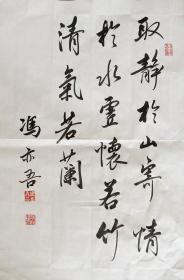 取静於山寄情
於水虚懷若竹
清氣若蘭
馮亦吾